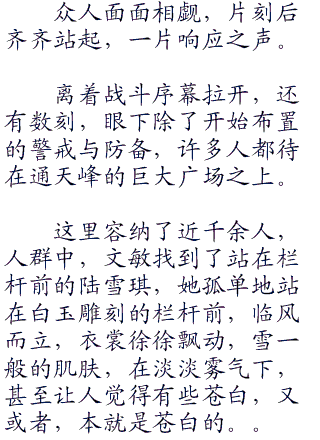 众人面面相觑，片刻后
齐齐站起，一片响应之声。
离着战斗序幕拉开，还
有数刻，眼下除了开始布置
的警戒与防备，许多人都待
在通天峰的巨大广场之上。
这里容纳了近千余人，
人群中，文敏找到了站在栏
杆前的陆雪琪，她孤单地站
在白玉雕刻的栏杆前，临风
而立，衣裳徐徐飘动，雪一
般的肌肤，在淡淡雾气下，
甚至让人觉得有些苍白，又
或者，本就是苍白的。。